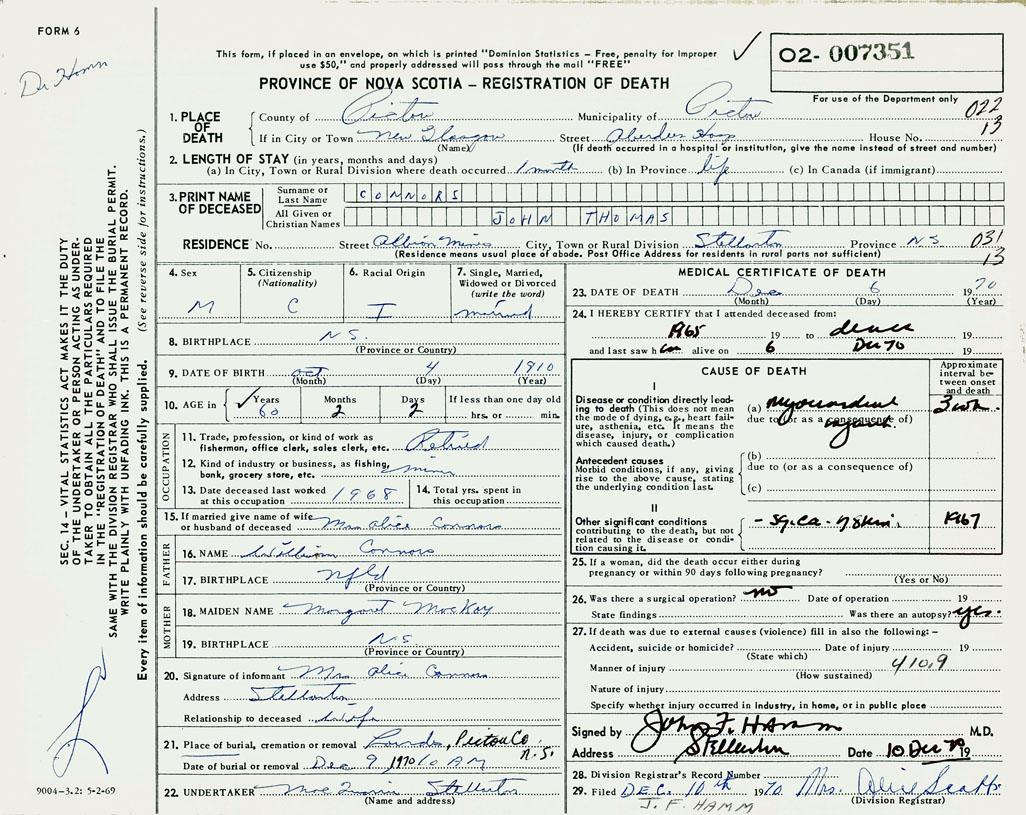 FORM 6
Dr Hamm
This form, if placed in an envelope, on which is printed "Dominion Statistics – Free, penalty for improper
use $50," and properly addressed will pass through the mail "FREE"
✓
O2- 007351
For use of the Department only
PROVINCE OF NOVA SCOTIA – REGISTRATION OF DEATH
022
13
1. PLACE OF DEATH
County of Pictou Municipality of Pictou
If in City or Town New Glasgow Street Aberdeen Hosp House No.
(Name) (If death occurred in a hospital or institution, give the name instead of street and number)
2. LENGTH OF STAY (in years, months and days)
(a) In City, Town or Rural Division where death occurred 1 month (b) In Province life (c) In Canada (if immigrant)
3. PRINT NAME OF DECEASED
Surname or Last Name CONNORS
All Given or Christian Names JOHN THOMAS
RESIDENCE No. Street Albion Mines City, Town or Rural Division Stellarton Province NS 031
13
(Residence means usual place of abode. Post Office Address for residents in rural parts not sufficient)
4. Sex
M
5. Citizenship
(Nationality)
C
6. Racial Origin
I
7. Single, Married,
Widowed or Divorced
(write the word)
married
8. BIRTHPLACE N.S.
(Province or Country)
9. DATE OF BIRTH Oct 4 1910
(Month) (Day) (Year)
10. AGE in ✓ Years Months Days If less than one day old
60 2 2 hrs. or min.
OCCUPATION
11. Trade, profession, or kind of work as
fisherman, office clerk, sales clerk, etc. Retired
12. Kind of industry or business, as fishing,
bank, grocery store, etc. miner
13. Date deceased last worked
at this occupation 1968
14. Total yrs. spent in
this occupation
15. If married give name of wife
or husband of deceased Mrs Alice Connors
FATHER
16. NAME William Connors
17. BIRTHPLACE Nfld
(Province or Country)
MOTHER
18. MAIDEN NAME Margaret MacKay
19. BIRTHPLACE N.S.
(Province or Country)
20. Signature of informant Mrs Alice Connors
Address Stellarton
Relationship to deceased Wife
21. Place of burial, cremation or removal Lourdes, Pictou Co. N.S.
Date of burial or removal Dec 9 1970 10 AM
22. UNDERTAKER Stellarton
(Name and address)
MEDICAL CERTIFICATE OF DEATH
23. DATE OF DEATH Dec 6 1970
(Month) (Day) (Year)
24. I HEREBY CERTIFY that I attended deceased from:
1965 19 to death 19
and last saw him alive on 6 Dec 70 19
CAUSE OF DEATH
Approximate
interval be-
tween onset
and death
I
Disease or condition directly lead-
ing to death (This does not mean
the mode of dying, e.g., heart fail-
ure, asthenia, etc. It means the
disease, injury, or complication
which caused death.)
(a) myocardial
due to (or as a consequence of)
3 wk.
Antecedent causes
Morbid conditions, if any, giving
rise to the above cause, stating
the underlying condition last.
(b)
due to (or as a consequence of)
(c)
II
Other significant conditions
contributing to the death, but not
related to the disease or condi-
tion causing it.
- Sq. Ca. of skin. 1967
25. If a woman, did the death occur either during
pregnancy or within 90 days following pregnancy?
(Yes or No)
26. Was there a surgical operation? no Date of operation 19
State findings Was there an autopsy? yes.
27. If death was due to external causes (violence) fill in also the following: –
Accident, suicide or homicide? Date of injury 19
(State which)
Manner of injury 410.9
(How sustained)
Nature of injury
Specify whether injury occurred in industry, in home, or in public place
Signed by John F. HAMM M.D.
Address Stellarton Date 10 Dec 70 19
28. Division Registrar's Record Number
29. Filed DEC. 10th 1970 Mrs. Alice
(Division Registrar)
J. F. HAMM
SEC. 14 – VITAL STATISTICS ACT MAKES IT THE DUTY
OF THE UNDERTAKER OR PERSON ACTING AS UNDER-
TAKER TO OBTAIN ALL THE PARTICULARS REQUIRED
IN THE "REGISTRATION OF DEATH" AND TO FILE THE
SAME WITH THE DIVISION REGISTRAR WHO SHALL ISSUE THE BURIAL PERMIT.
WRITE PLAINLY WITH UNFADING INK. THIS IS A PERMANENT RECORD.
Every item of information should be carefully supplied. (See reverse side for instructions.)
9004-3.2: 5-2-69